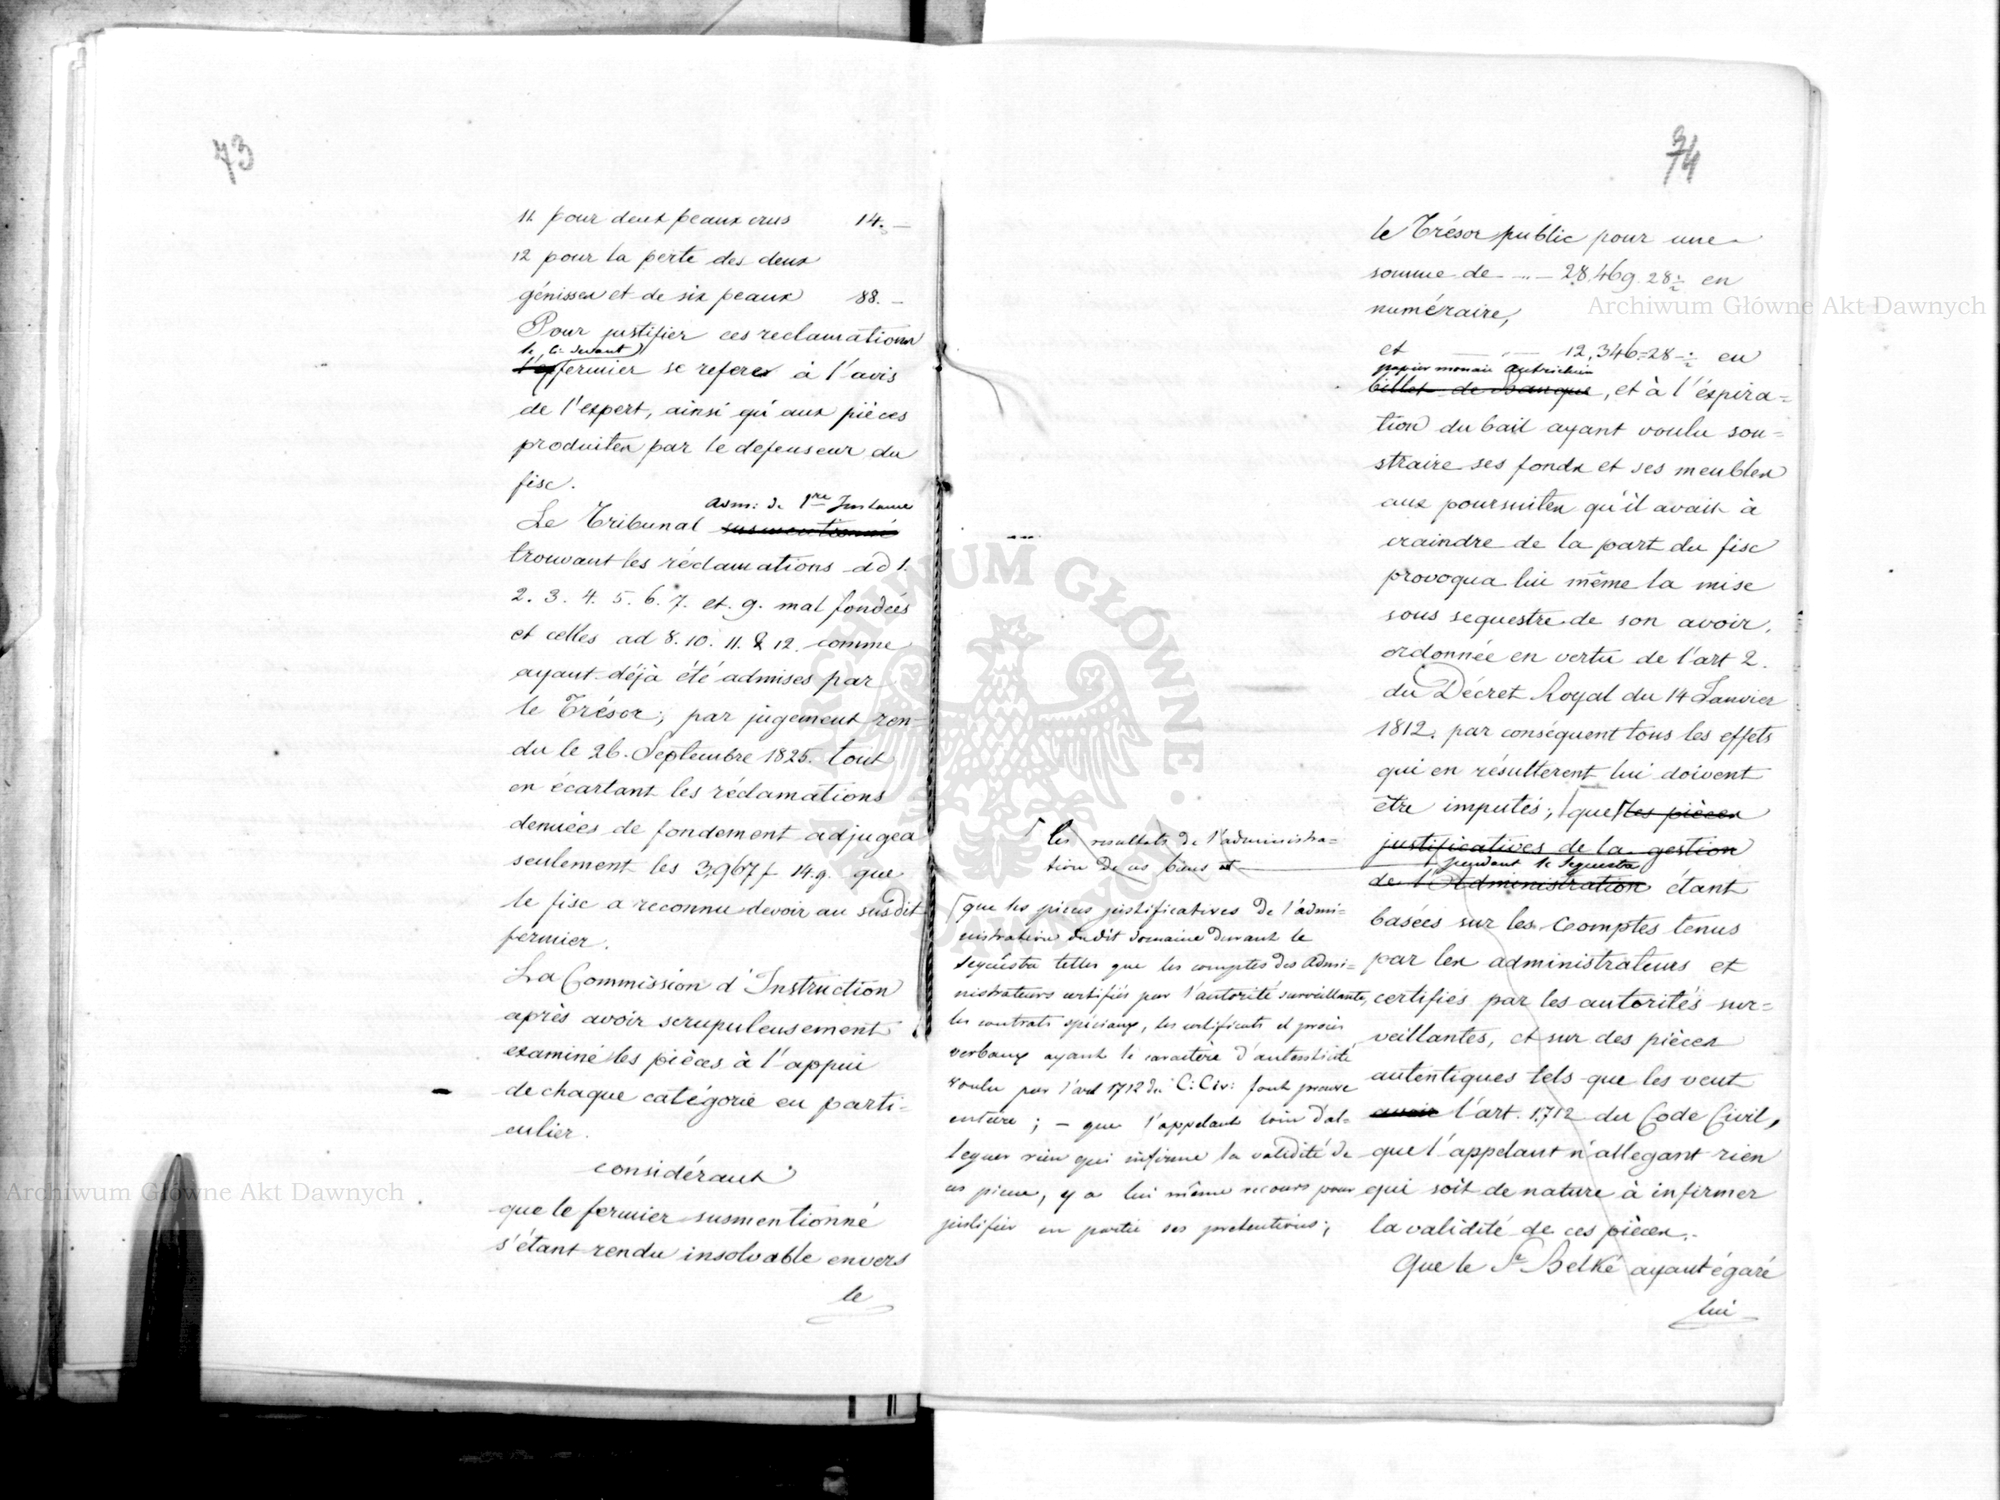 73
11. pour deux peaux crus 14. —
12 pour la perte des deux
génisses et de six peaux 88. —
Pour justifier ces reclamations
le ci-devant
l'exfermier se referer à l'avis
de l'expert, ainsi qu'aux pièces
produites par le defenseur du
fisc.
adm: de 1re Instance
Le Tribunal susmentionné
trouvant les réclamations ad 1.
2. 3. 4. 5. 6. 7. et. 9. mal fondées
et celles ad 8. 10. 11. & 12. comme
ayant déjà été admises par
le Trésor; par jugement ren-
du le 26. Septembre 1825. tout
en écartant les réclamations
denuées de fondement adjugea
seulement les 3,967 f 14.g. que
le fisc a reconnu devoir au susdit
fermier.
La Commission d'Instruction
après avoir scrupuleusement
examiné les pièces à l'appui
de chaque catégorie en parti-
culier.
considérant
que le fermier susmentionné
s'étant rendu insolvable envers
le
74
le Trésor public pour une
somme de 28.469. 28 en
numéraire,
et 12,346=28 en
papier monnaie Autrichien
billet de banque, et à l'éspira=
tion du bail ayant voulu sou=
straire ses fonds et ses meubles
aux poursuites qu'il avait à
craindre de la part du fisc
provoqua lui même la mise
sous sequestre de son avoir,
ordonnée en vertu de l'art 2.
du Décret Royal du 14 Janvier
1812. par conséquent tous les effets
qui en résulterent lui doivent
être imputés; que les pièces
justificatives de la gestion
pendant le Sequestre
de l'Administration étant
basées sur les Comptes tenus
par les administrateurs et
certifiés par les autorités sur=
veillantes, et sur des pièces
autentiques tels que les veut
avoir l'art. 1712 du Code Civil,
que l'appelant n'allegant rien
qui soit de nature à infirmer
la validité de ces pièces.
Que le Sr Belké ayant égaré
lui
les resultats de l'administra=
tion de ces biens et
que les pièces justificatives de l'admi=
nistration dudit domaine durant le
sequestre telles que les comptes des Admi=
nistrateurs certifiés par l'autorité surveillante,
les contrats spéciaux, les certificats et procès
verbaux ayant le caractère d'autenticité
voulu par l'art 1712 du C: Civ: font preuve
entière; – que l'appelant loin d'al-
leguer rien qui infirme la validité de
ces pièces, y a lui même recours pour
justifier en partie ses pretentions;
Archiwum Główne Akt Dawnych
Archiwum Główne Akt Dawnych
ARCHIWUM GŁÓWNE AKT DAWNYCH